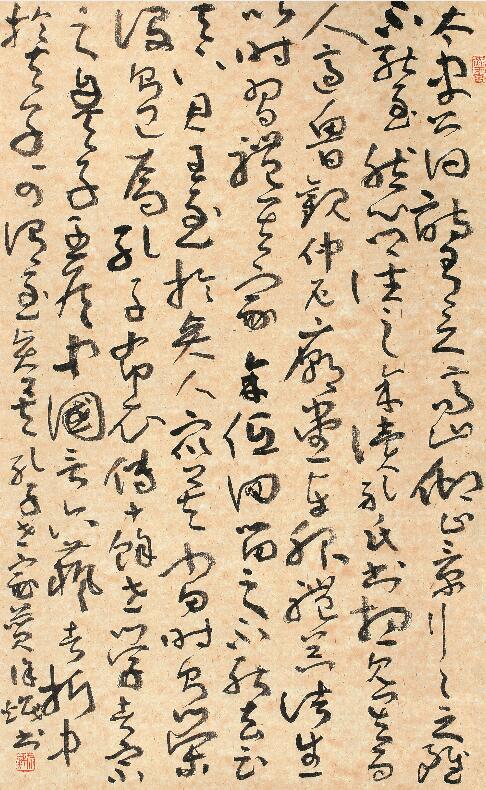 太史公曰詩有之高山仰止景行行之雖
不能至然心鄉往之余讀孔氏書想見其為
人適魯觀仲尼廟堂車服禮器諸生
以時習禮其家余低回留之不能去云
天下君王至於賢人眾矣當時則榮
沒則已焉孔子布衣傳十餘世學者宗
之自天子王侯中國言六藝者折中
於夫子可謂至聖矣孔子世家贊徐書